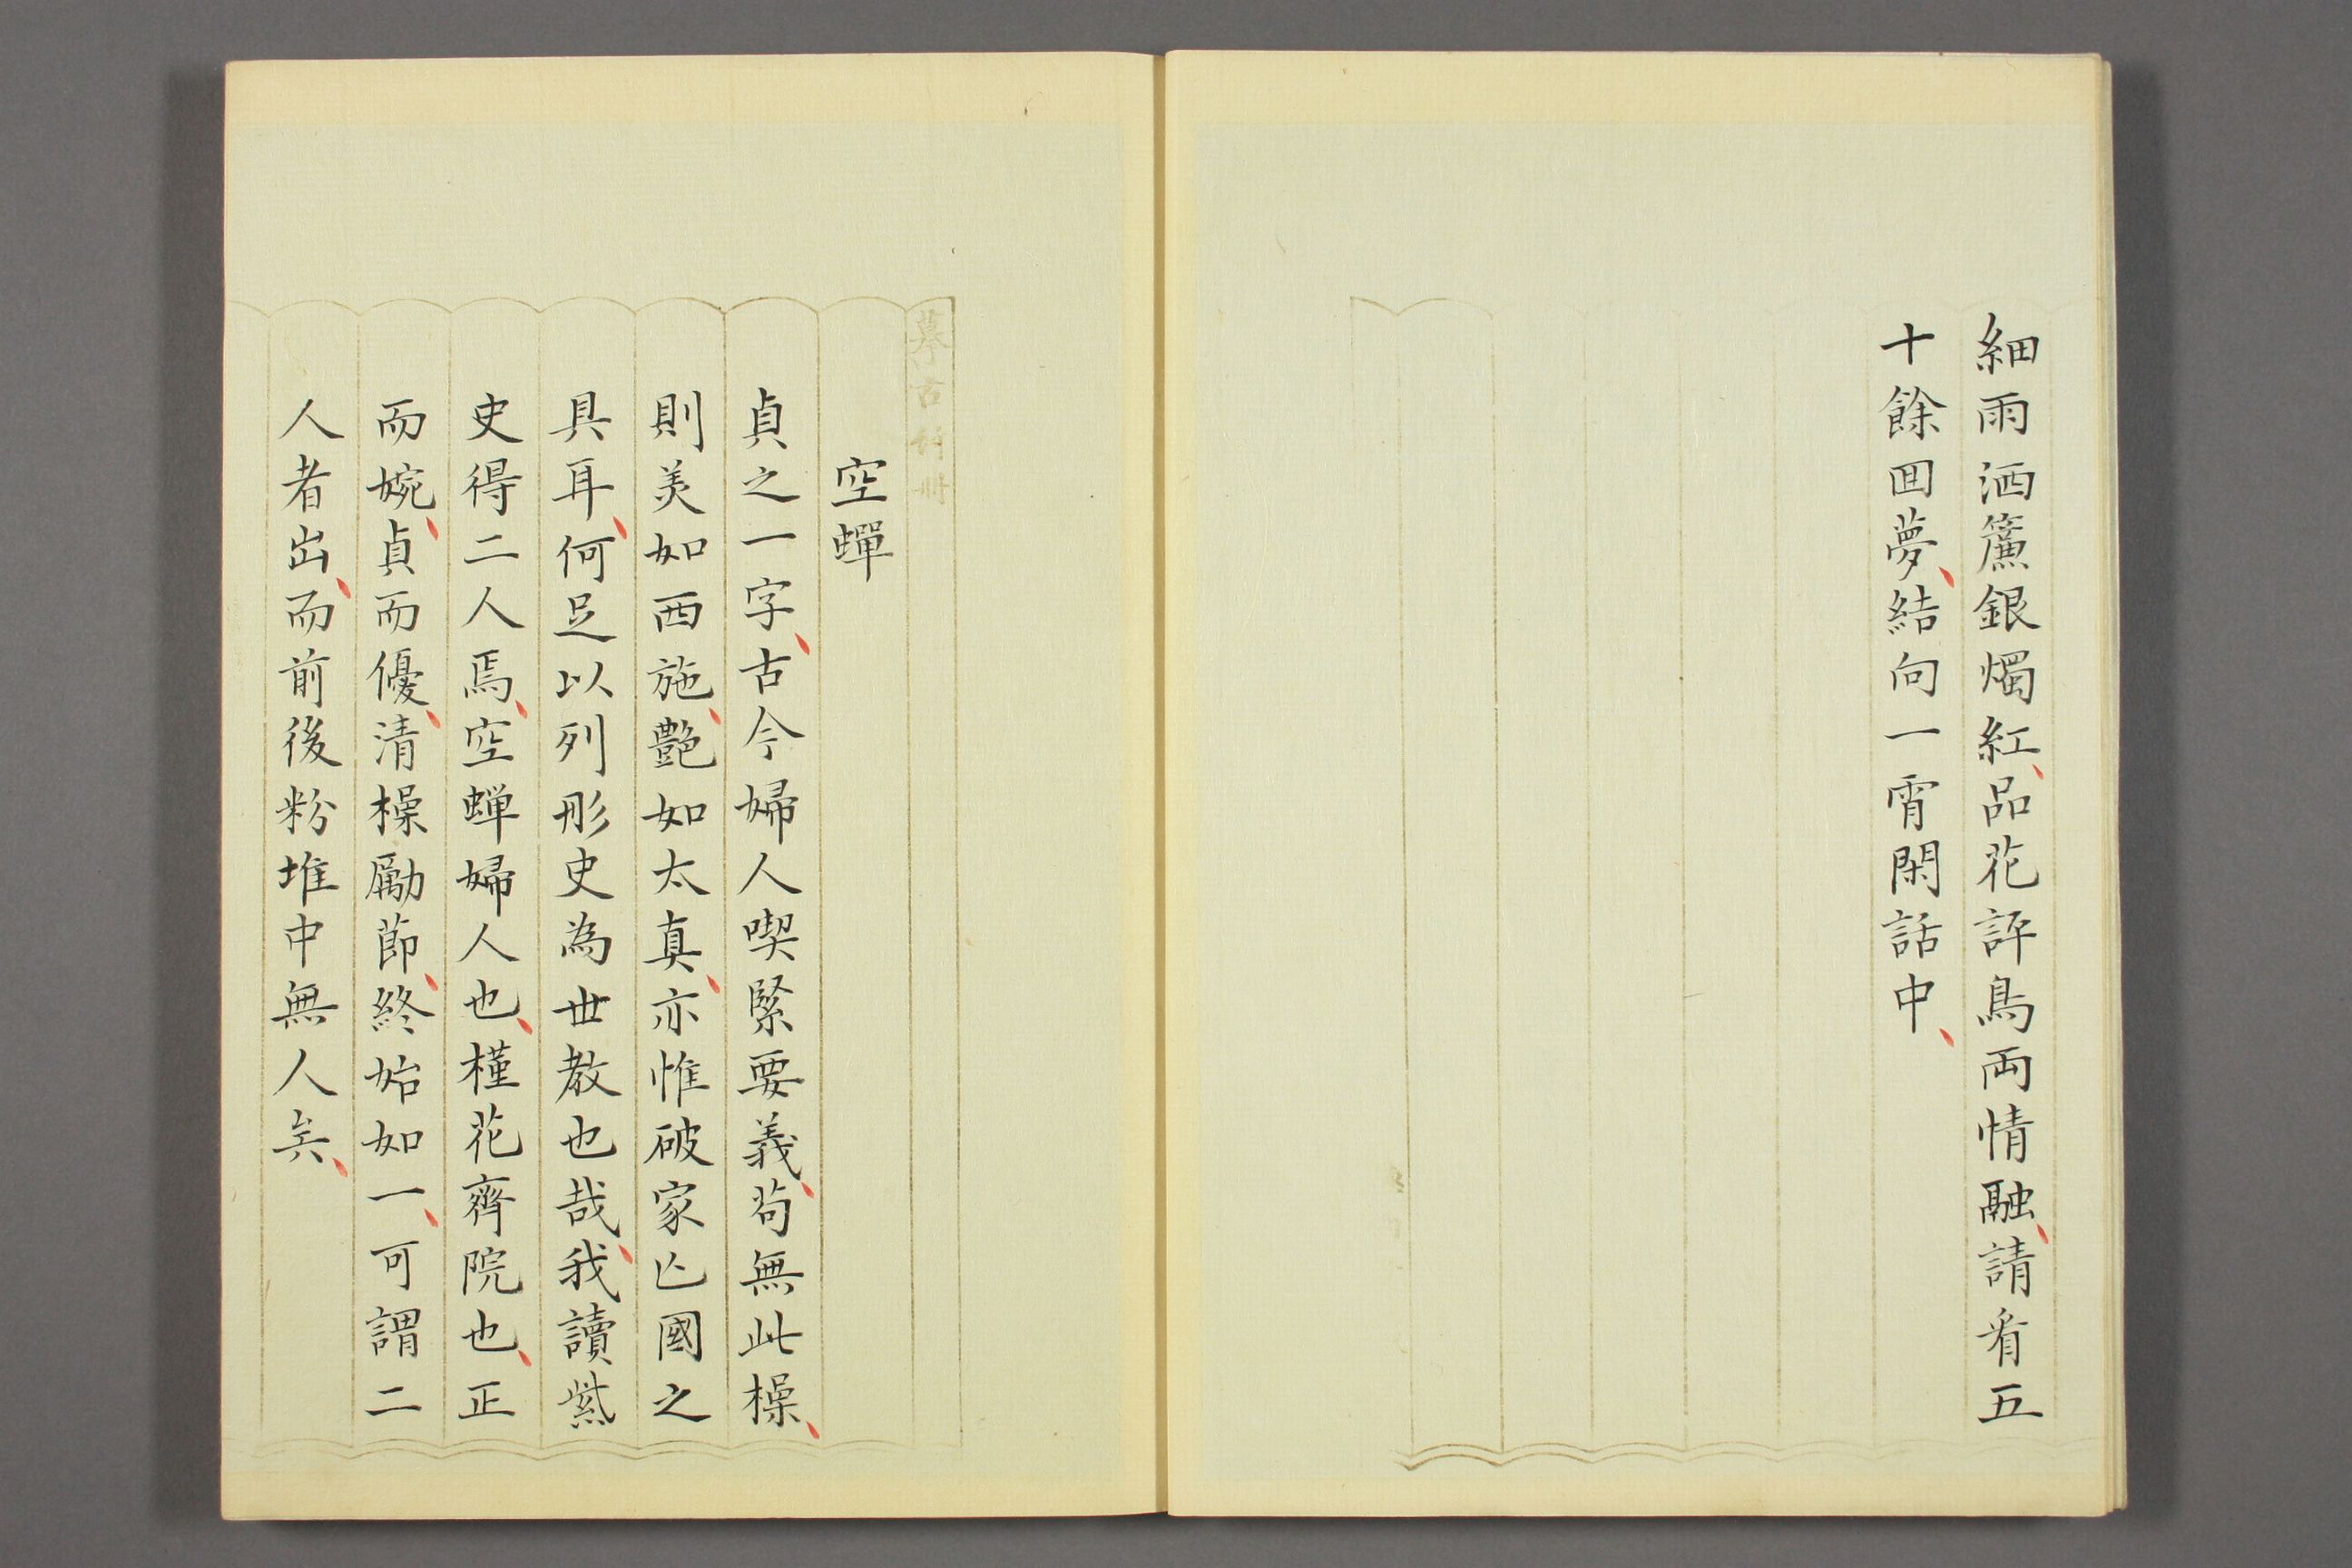 細雨洒簾銀燭紅、品花評鳥両情融、請看五
十餘回夢、結向一宵閑話中、
空蟬
貞之一字、古今婦人喫緊要義、苟無此操、
則美如西施、艶如太真、亦惟破家亾國之
具耳、何足以列彤史為世教也哉、我讀紫
史得二人焉、空蝉婦人也、槿花齊院也、正
而婉、貞而優、清操勵節、終始如一、可謂二
人者出、而前後粉堆中無人矣、